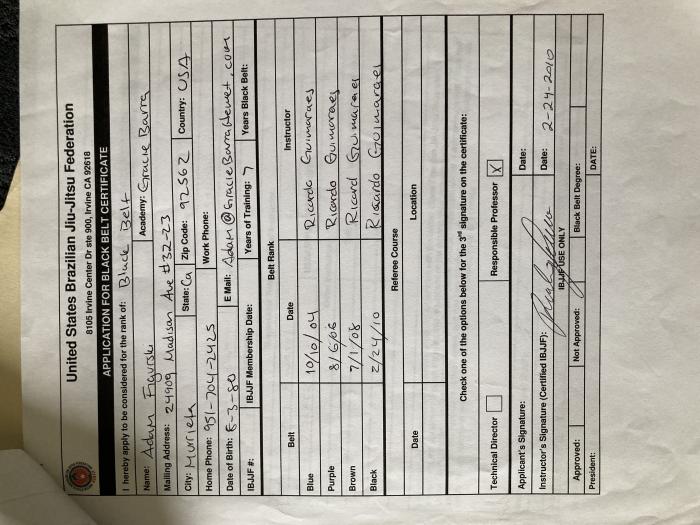 United States Brazilian Jiu-Jitsu Federation
8105 Irvine Center Dr ste 900, Irvine CA 92618
APPLICATION FOR BLACK BELT CERTIFICATE
I hereby apply to be considered for the rank of: Black Belt
Name: Adam Figurski Academy: Gracie Barra
Mailing Address: 24909 Madison Ave #32-23
City: Murrieta State: Ca Zip Code: 92562 Country: USA
Home Phone: 951-704-2425 Work Phone:
Date of Birth: 5-3-80 E Mail: Adam@GracieBarraHemet.com
IBJJF #: IBJJF Membership Date: Years of Training: 7 Years Black Belt:
Belt Rank
Belt Date Instructor
Blue 10/10/04 Ricardo Guimaraes
Purple 8/6/06 Ricardo Guimaraes
Brown 7/1/08 Ricard Guimaraes
Black 2/24/10 Ricardo Guimaraes
Referee Course
Date Location
Check one of the options below for the 3rd signature on the certificate:
Technical Director Responsible Professor X
Applicant's Signature: Date:
Instructor's Signature (Certified IBJJF): Date: 2-24-2010
IBJJF USE ONLY
Approved: Not Approved: Black Belt Degree:
President: DATE: